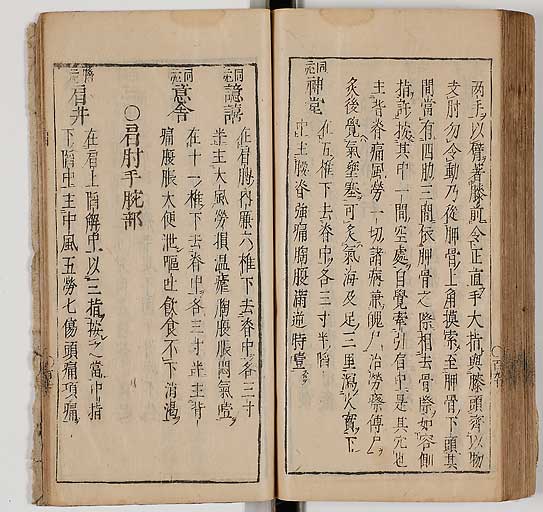 兩手以臂著膝前令正直手大指與膝頭齊以物
支肘勿令動乃從胛骨上角摸索至胛骨下頭其
間當有四肋三間依胛骨之際相去骨際如容側
指許按其中一間空處自覺牽引肩中是其穴也
主背脊痛風勞一切諸病兼魄尸冶勞瘵傳尸
灸後覺氣壅塞可灸氣海及足三里瀉火實下
同
神堂
在五椎下去脊中各三寸半陷
中主腰脊強痛胸腹滿逆時噎
同
譩譆
在肩膊內廉六椎下去脊中各三寸
半主大風勞損溫瘧胸腹脹悶氣噎
同
意舍
在十一椎下去脊中各三寸半主背
痛腹脹大便泄嘔吐飲食不下消渴
○肩肘手腕部
肩井
在肩上陷解中以三指按之當中指
下陷中主中風五勞七傷頭痛項痛